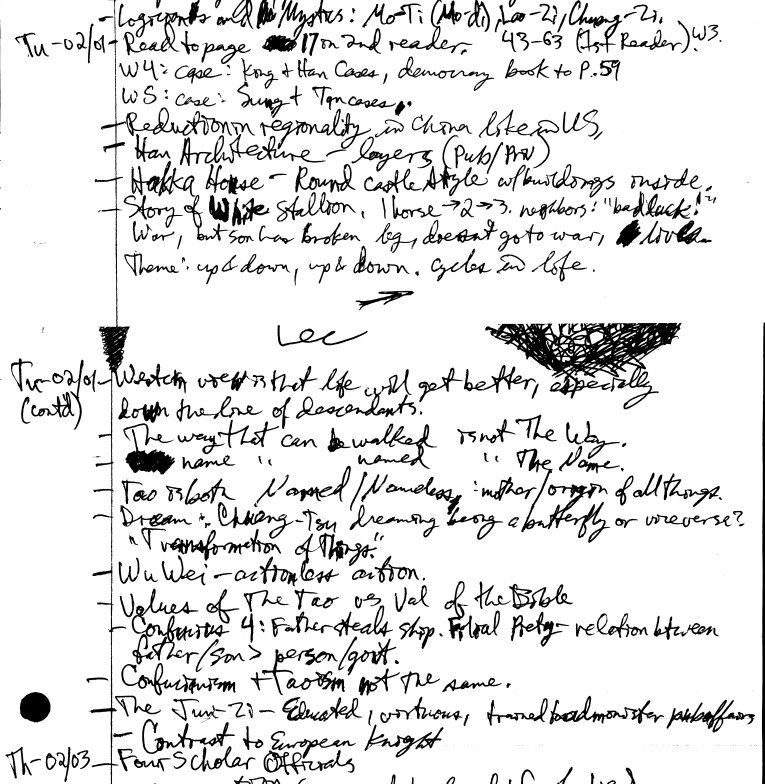 - Logicians and Mystics: Mo-Ti (Mo-di), Lao-Zi, Chuang-Zi.
Tu-02/01- Read to page 17 on 2nd reader. 43-63 (1st Reader). W3.
W4: case: Kong + Han Cases, democracy book to P.59
W5: case: Sung + Tan cases.
- Reduction in regionality in China like in US,
- Han Architecture - layers (Pub/Priv)
- Hakka House - Round castle style w/buildings inside.
- Story of White Stallion. 1 horse→2→3. neighbors: "bad luck!"
War, but son has broken leg, doesn't go to war, lives.
Theme: up & down, up & down. Cycles in life.
Lec
Tu-02/01- Western view is that life will get better, especially
(cont'd) down the line of descendants.
- The way that can be walked is not The Way.
- name " named " The Name.
- Tao is both Named/Nameless: mother/origin of all things.
- Dream: Chuang-Tsu dreaming being a butterfly or viceversa?
"Transformation of Things."
- Wu Wei - actionless action.
- Values of The Tao vs. Val of the Bible
- Confucius 4: Father steals shp. Filial Piety - relation btween
father/son > person/govt.
- Confucianism + Taoism not the same.
- The Jun-Zi - Educated, virtuous, trained to administer pub affairs
- Contrast to European Knight
Th-02/03- Four Scholar Officials